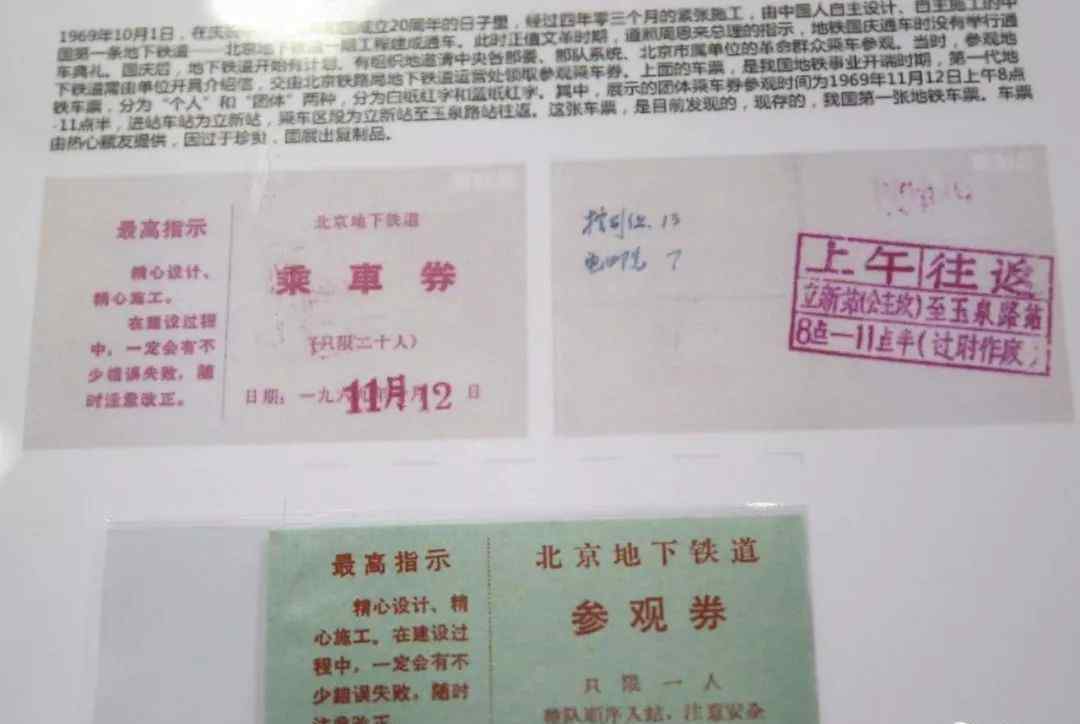 1969年10月1日，在庆祝
成立20周年的日子里，经过四年零三个月的紧张施工，由中国人自主设计、自主施工的中
国第一条地下铁道——北京地下铁道一期工程建成通车。此时正值文革时期，遵照周恩来总理的指示，地铁国庆通车时没有举行通
车典礼。国庆后，地下铁道开始有计划、有组织地邀请中央各部委、部队系统、北京市属单位的革命群众乘车参观。当时，参观地
下铁道需由单位开具介绍信，交由北京铁路局地下铁道运营处领取参观乘车券。上面的车票，是我国地铁事业开端时期，第一代地
铁车票，分为“个人”和“团体”两种，分为白纸红字和蓝纸红字。其中，展示的团体乘车券参观时间为1969年11月12日上午8点
-11点半，进站车站为立新站，乘车区段为立新站至玉泉路站往返。这张车票，是目前发现的，现存的，我国第一张地铁车票。车票
由热心藏友提供，因过于珍贵，因展出复制品。
最高指示
精心设计、
精心施工。
在建设过程
中，一定会有不
少错误失败，随
时注意改正。
北京地下铁道
乘車券
(只限二十人)
日期：一九六九年11月12日
13
7
上午往返
立新站(公主坟)至玉泉路站
8点—11点半(过时作废)
最高指示
精心设计、精
心施工。在建设过
程中，一定会有不
少错误失败，随时
注意改正
北京地下铁道
参观券
只限一人
排队顺序入站，注意安全